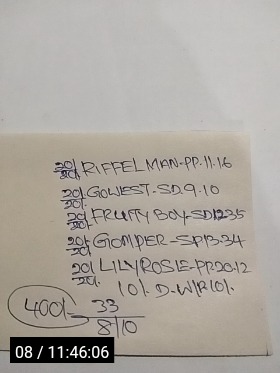 20/20/. RIFFELMAN-PP.11.16
20/20/. GOWEST-SD.9.10
20/20/. FRUITY BOY-SD1235
20/20/. GOMPIER-SP13-34
20/20/. LILYROSIE-PP20.12
10/. D-W/R10/.
400/- 33
8/10
08 / 11:46:06